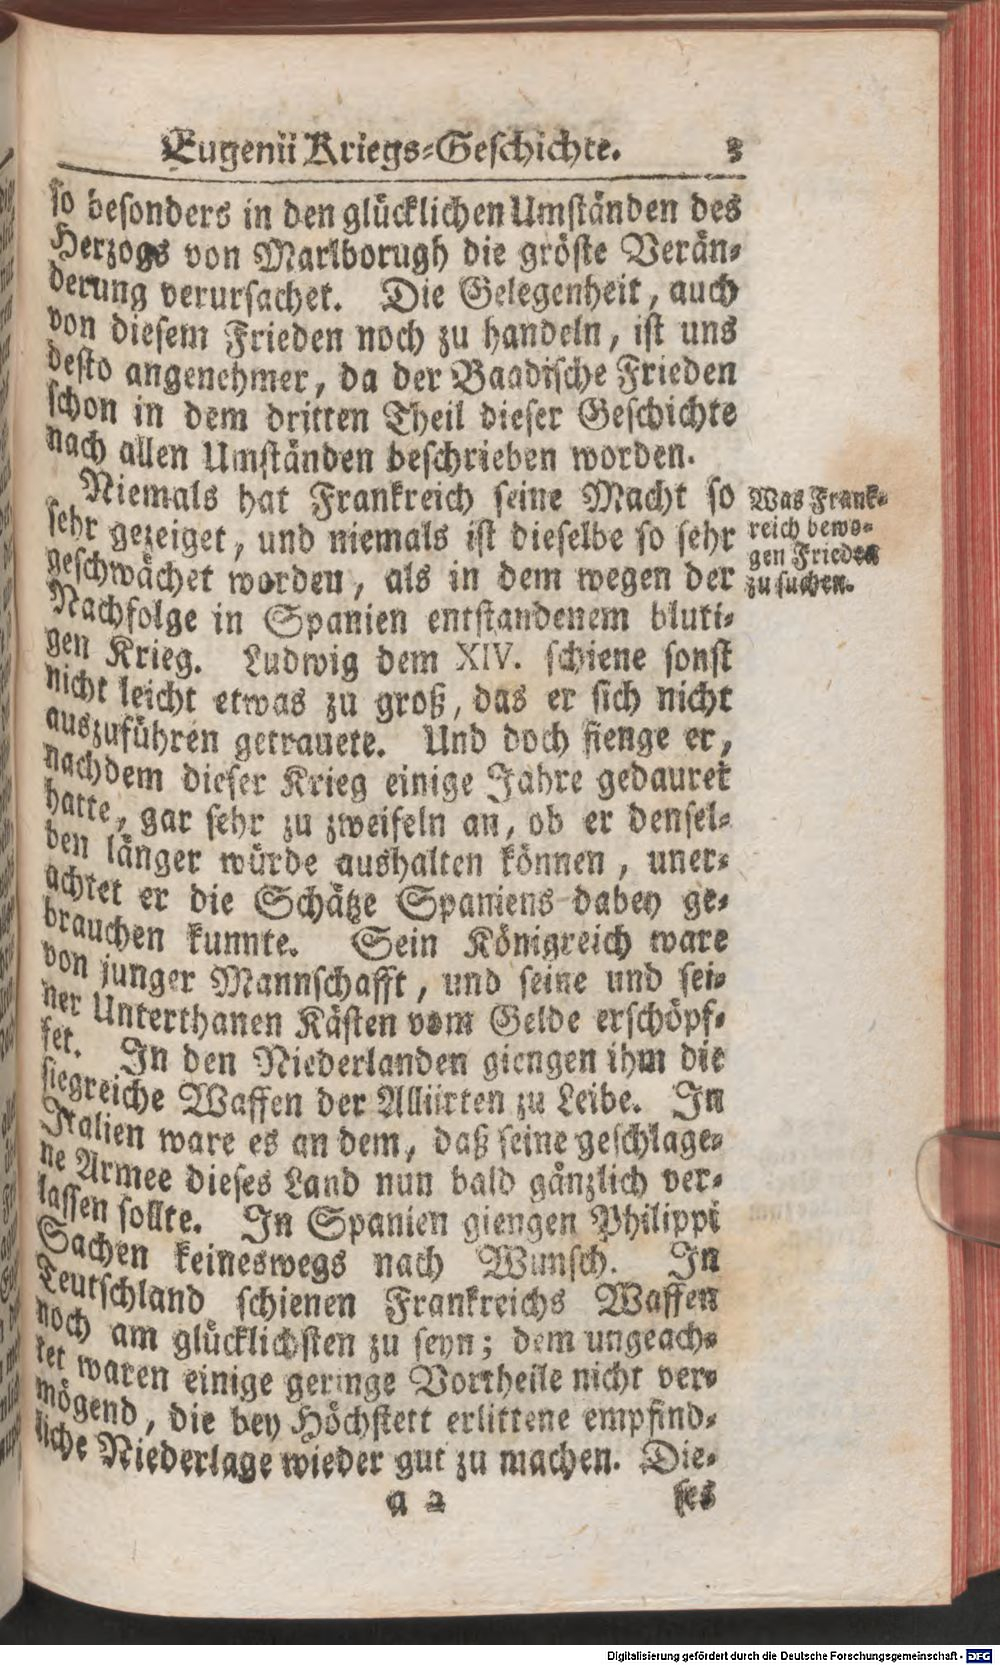 Eugenii Kriegs-Geschichte. 3
so besonders in den glücklichen Umständen des
Herzogs von Marlborugh die gröste Verän-
derung verursachet. Die Gelegenheit, auch
von diesem Frieden noch zu handeln, ist uns
desto angenehmer, da der Baadische Frieden
schon in dem dritten Theil dieser Geschichte
nach allen Umständen beschrieben worden.
Niemals hat Frankreich seine Macht so
sehr gezeiget, und niemals ist dieselbe so sehr
geschwächet worden, als in dem wegen der
Nachfolge in Spanien entstandenem bluti-
gen Krieg. Ludwig dem XIV. schiene sonst
nicht leicht etwas zu groß, das er sich nicht
auszuführen getrauete. Und doch fienge er,
nachdem dieser Krieg einige Jahre gedauret
hatte, gar sehr zu zweifeln an, ob er densel-
ben länger würde aushalten können, uner-
achtet er die Schätze Spaniens dabey ge-
brauchen kunnte. Sein Königreich ware
von junger Mannschafft, und seine und sei-
ner Unterthanen Kästen vom Gelde erschöpf-
fet. In den Niederlanden giengen ihm die
siegreiche Waffen der Alliirten zu Leibe. In
Italien ware es an dem, daß seine geschlage-
ne Armee dieses Land nun bald gänzlich ver-
lassen sollte. In Spanien giengen Philippi
Sachen keineswegs nach Wunsch. In
Teutschland schienen Frankreichs Waffen
noch am glücklichsten zu seyn; dem ungeach-
tet waren einige geringe Vortheile nicht ver-
mögend, die bey Höchstett erlittene empfind-
liche Niederlage wieder gut zu machen. Die-
a 2 ses
Was Frank-
reich bewo-
gen Frieden
zu suchen.
Digitalisierung gefördert durch die Deutsche Forschungsgemeinschaft - DFG